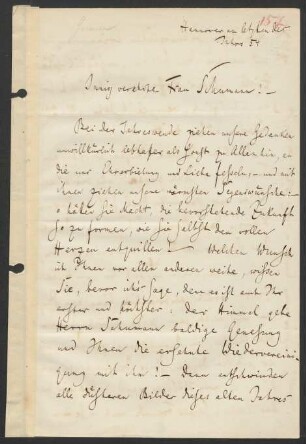 Hannover am letzten des
Jahres 54
Innig verehrte Frau Schumann! –
Bei der Jahreswende ziehen unsere Gedanken
unwillkürlich lebhafter als sonst zu Allen hin, an
die uns Verehrung und Liebe fesseln, – und mit
ihnen ziehen unsere wärmsten Segenswünsche: –
o hätten Sie Macht, die bevorstehende Zukunft
so zu formen, wie sie selbst dem vollen
Herzen entquillen! – Welchen Wunsch
ich Ihnen vor allen anderen weihe, wissen
Sie, bevor ich's sage, denn es ist auch Ihr
erster und höchster: der Himmel gebe
Herrn Schumann baldige Genesung
und Ihnen die ersehnte Wiederverein
gung mit ihm! – Dann entschwinden
alle düsteren Bilder dieses alten Jahres